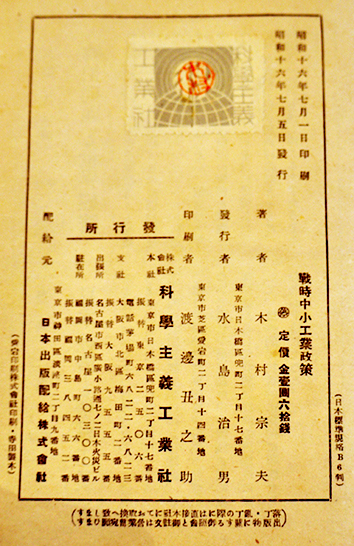 (日本標準規格B6判)
戰時中小工業政策
定價 金壹圓六拾錢
著者 木村宗夫
東京市日本橋區兜町二丁目十七番地
發行者 水島治男
東京市芝區愛宕町二丁目十四番地
印刷者 渡邊丑之助
昭和十六年七月一日印刷
昭和十六年七月五日發行
科學主義
工業社
發行所
株式會社 科學主義工業社
本社 東京市日本橋區兜町二丁目十七番地
振替東京
電話茅場町
支社 大阪市北區梅田町二番地
振替大阪
出張所
振替名古屋
駐在所 福岡市中島町六六番地
振替福岡
配給元
東京市神田區淡路町二丁目九番地
日本出版配給株式會社
(愛宕印刷株式會社印刷・寺田製本)